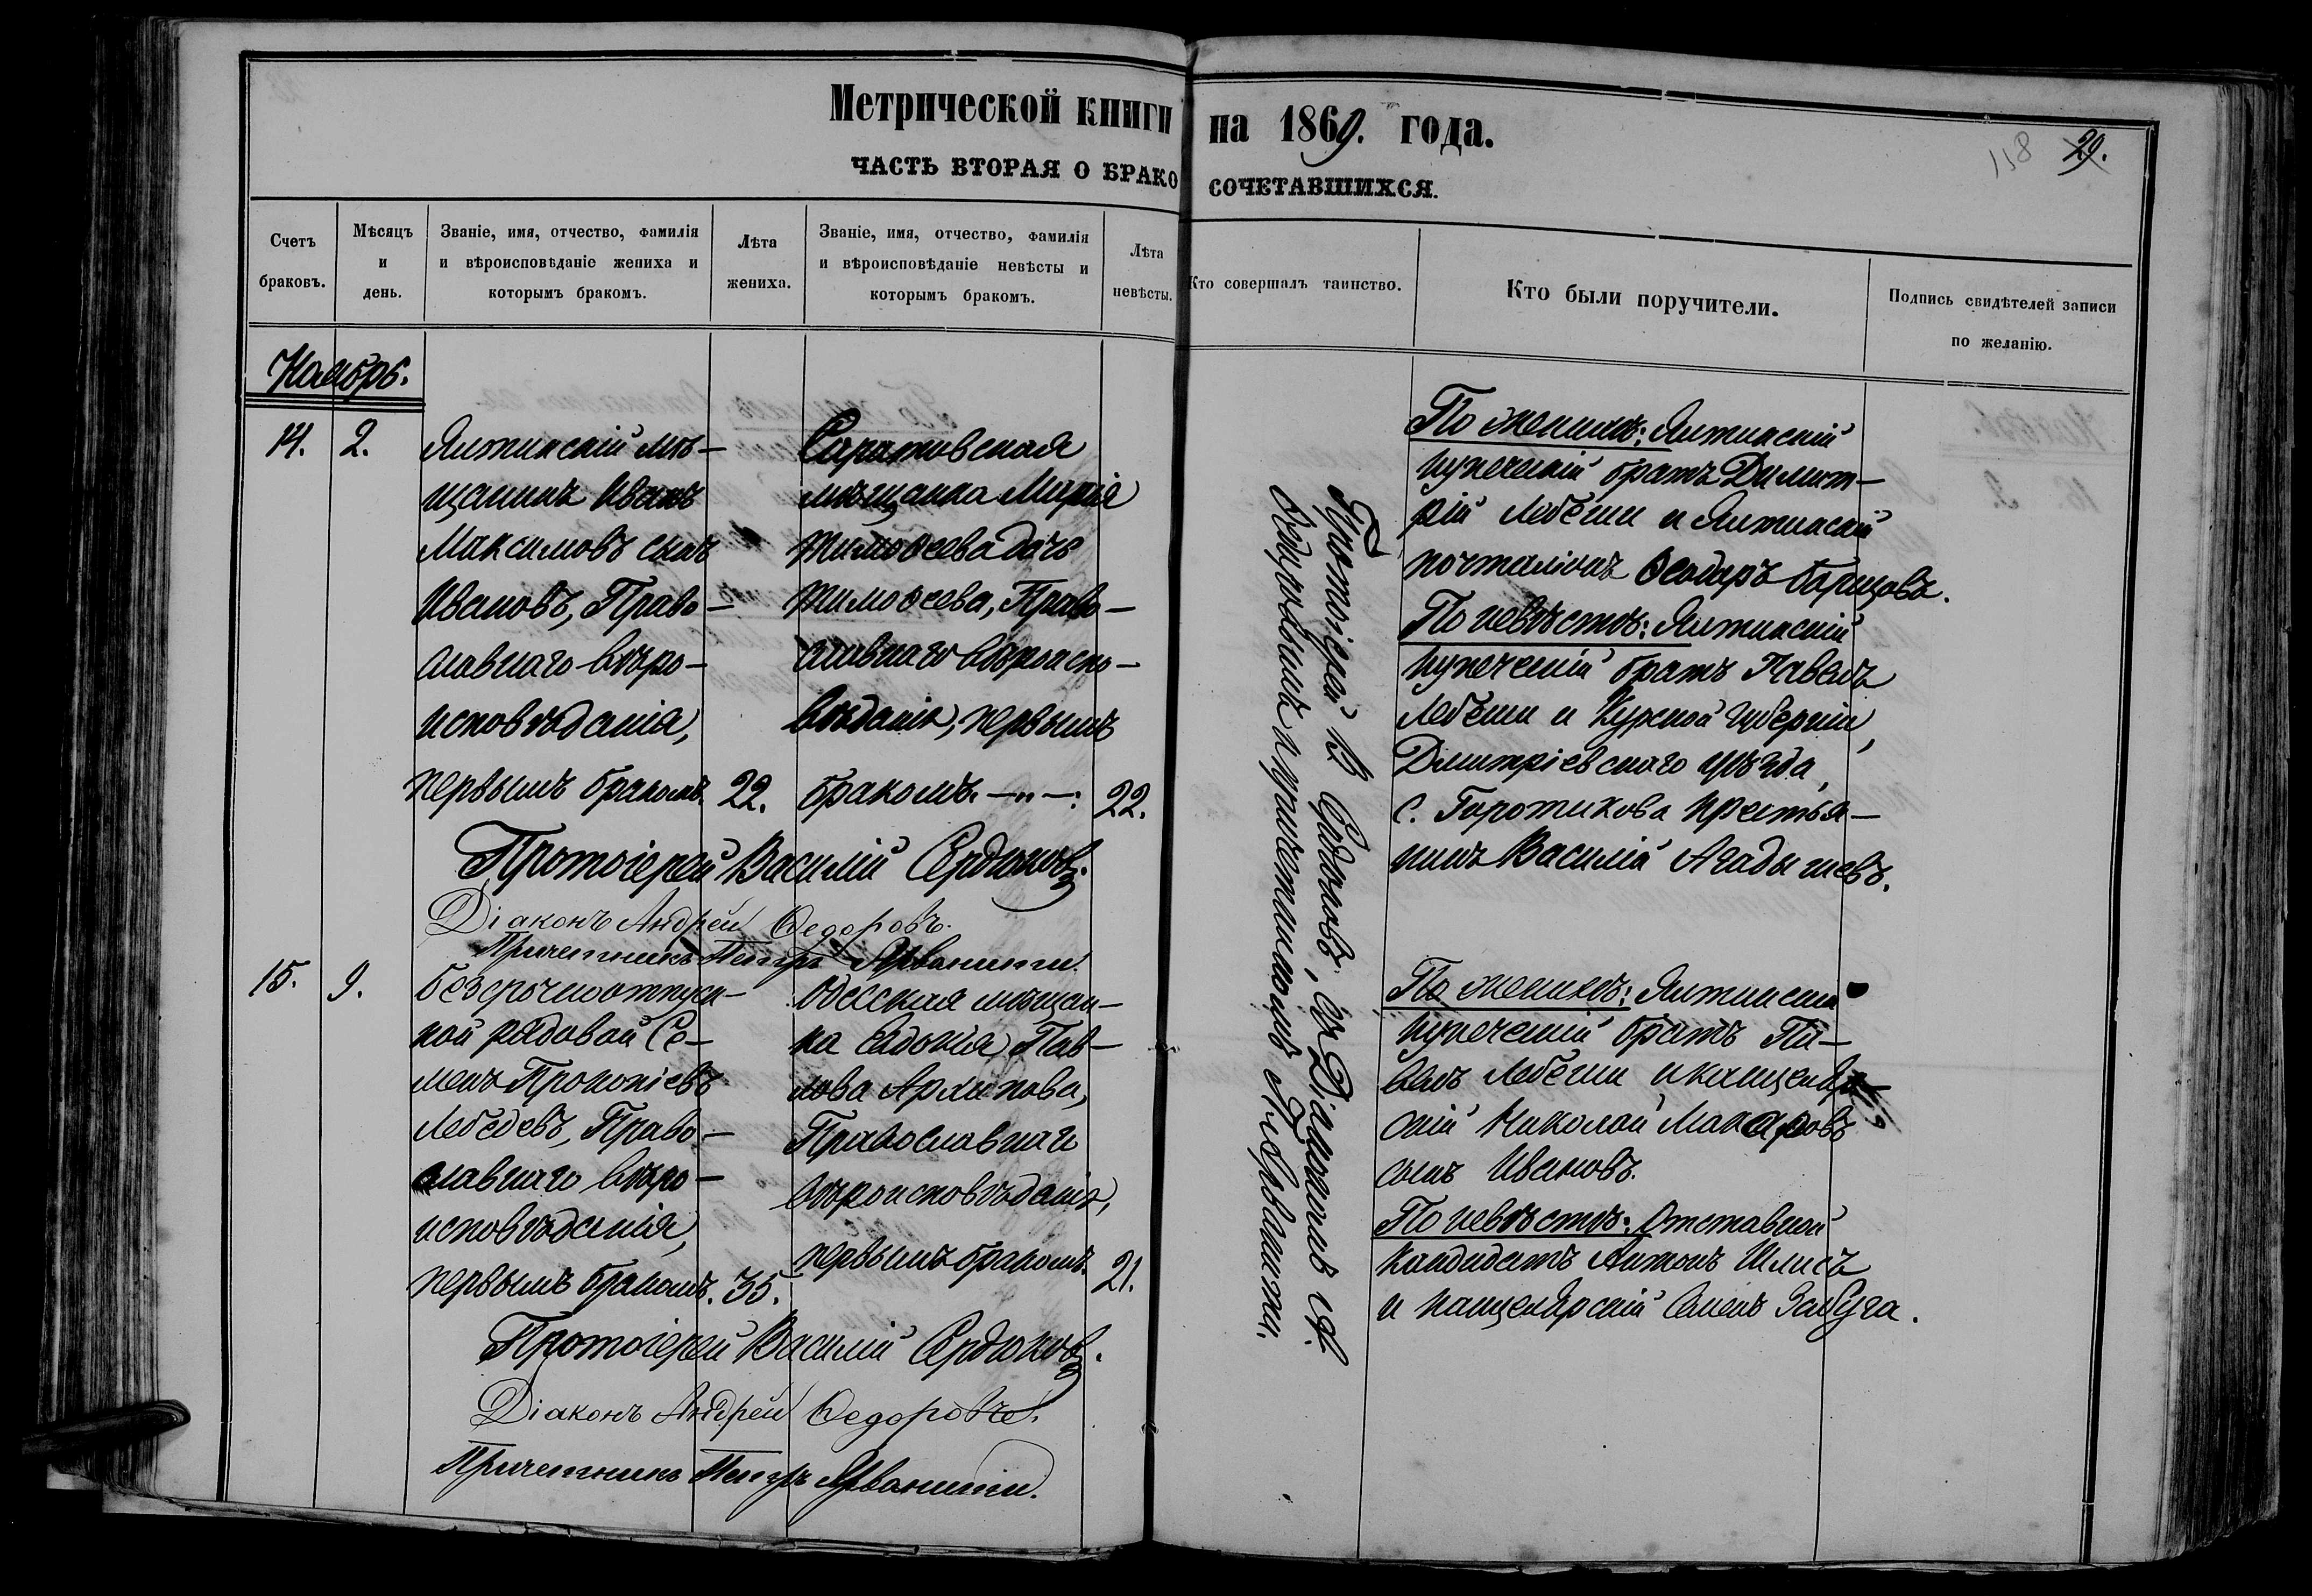 Метрической книги на 1869. года.
ЧАСТЬ ВТОРАЯ О БРАКОСОЧЕТАВШИХСЯ.
118 29.
Счетъ браковъ.
Мѣсяцъ и день.
Званіе, имя, отчество, фамилія и вѣроисповѣданіе жениха и которымъ бракомъ.
Лѣта жениха.
Званіе, имя, отчество, фамилія и вѣроисповѣданіе невѣсты и которымъ бракомъ.
Лѣта невѣсты.
Кто совершалъ таинство.
Кто были поручители.
Подпись свидѣтелей записи по желанію.
Ноябрь.
14. 2.
Ялтинскій мѣ-
щанинъ Иванъ
Максимовъ сынъ
Ивановъ, Право-
славнаго вѣро-
исповѣданія,
первымъ бракомъ. 22.
Саратовская
мѣщанка Марія
Тимоѳеева дочь
Тимоѳеева, Право-
славнаго вѣроиспо-
вѣданія, первымъ
бракомъ. —„—: 22.
Протоіерей В Сердюковъ, съ Діакономъ А.
Ѳедоровымъ и причетникомъ П. Арванити.
По женихѣ: Ялтинскій
купеческій братъ Димит-
рій Лебеши и Ялтинскій
почталіонъ Ѳеодоръ Борщовъ.
По невѣстѣ: Ялтинскій
купеческій братъ Павелъ
Лебеши и Курской губерніи,
Дмитріевскаго уѣзда,
с. крестья-
нинъ Василій
Протоіерей Василій Сердюковъ.
Діаконъ Андрей Ѳедоровъ.
Причетникъ Петръ Арванити.
15. 9.
Безсрочноотпуск-
ной рядовой Се-
менъ Прокопіевъ
Лебедевъ, Право-
славнаго вѣро-
исповѣданія,
первымъ бракомъ. 35.
Одесская мѣщан-
ка Евдокія Пав-
лова Архипова,
Православнаго
вѣроисповѣданія,
первымъ бракомъ. 21.
По женихѣ: Ялтинскій
купеческій братъ Па-
велъ Лебеши и канцеляр-
скій Николай Макаровъ
сынъ Ивановъ.
По невѣстѣ: Отставной
кандидатъ Антонъ Шлисъ
и канцелярскій Семенъ Забуга.
Протоіерей Василій Сердюковъ.
Діаконъ Андрей Ѳедоровъ.
Причетникъ Петръ Арванити.